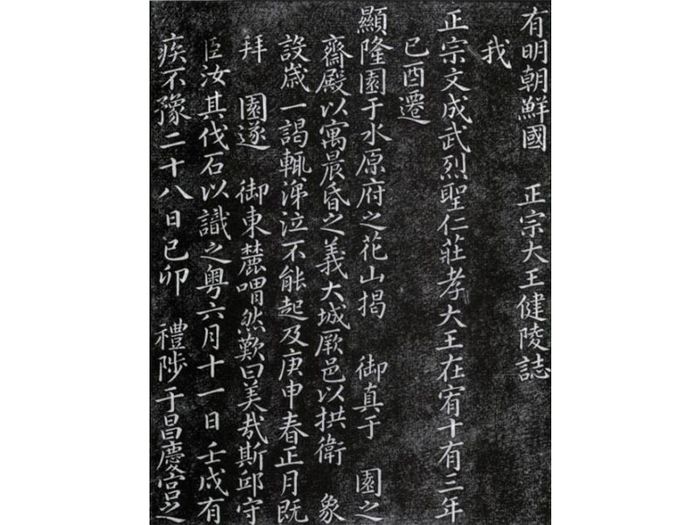 有明朝鮮國 正宗大王健陵誌
我
正宗文成武烈聖仁莊孝大王在宥十有三年
己酉遷
顯隆園于水原府之花山揭 御真于 園之
齋殿以寓晨昏之義大城厥邑以拱衛 象
設歲一謁輒涕泣不能起及庚申春正月既
拜 園遂 御東麓喟然歎曰美哉斯邱守
臣汝其伐石以識之粤六月十一日壬戌有
疾不豫二十八日己卯 禮陟于昌慶宮之